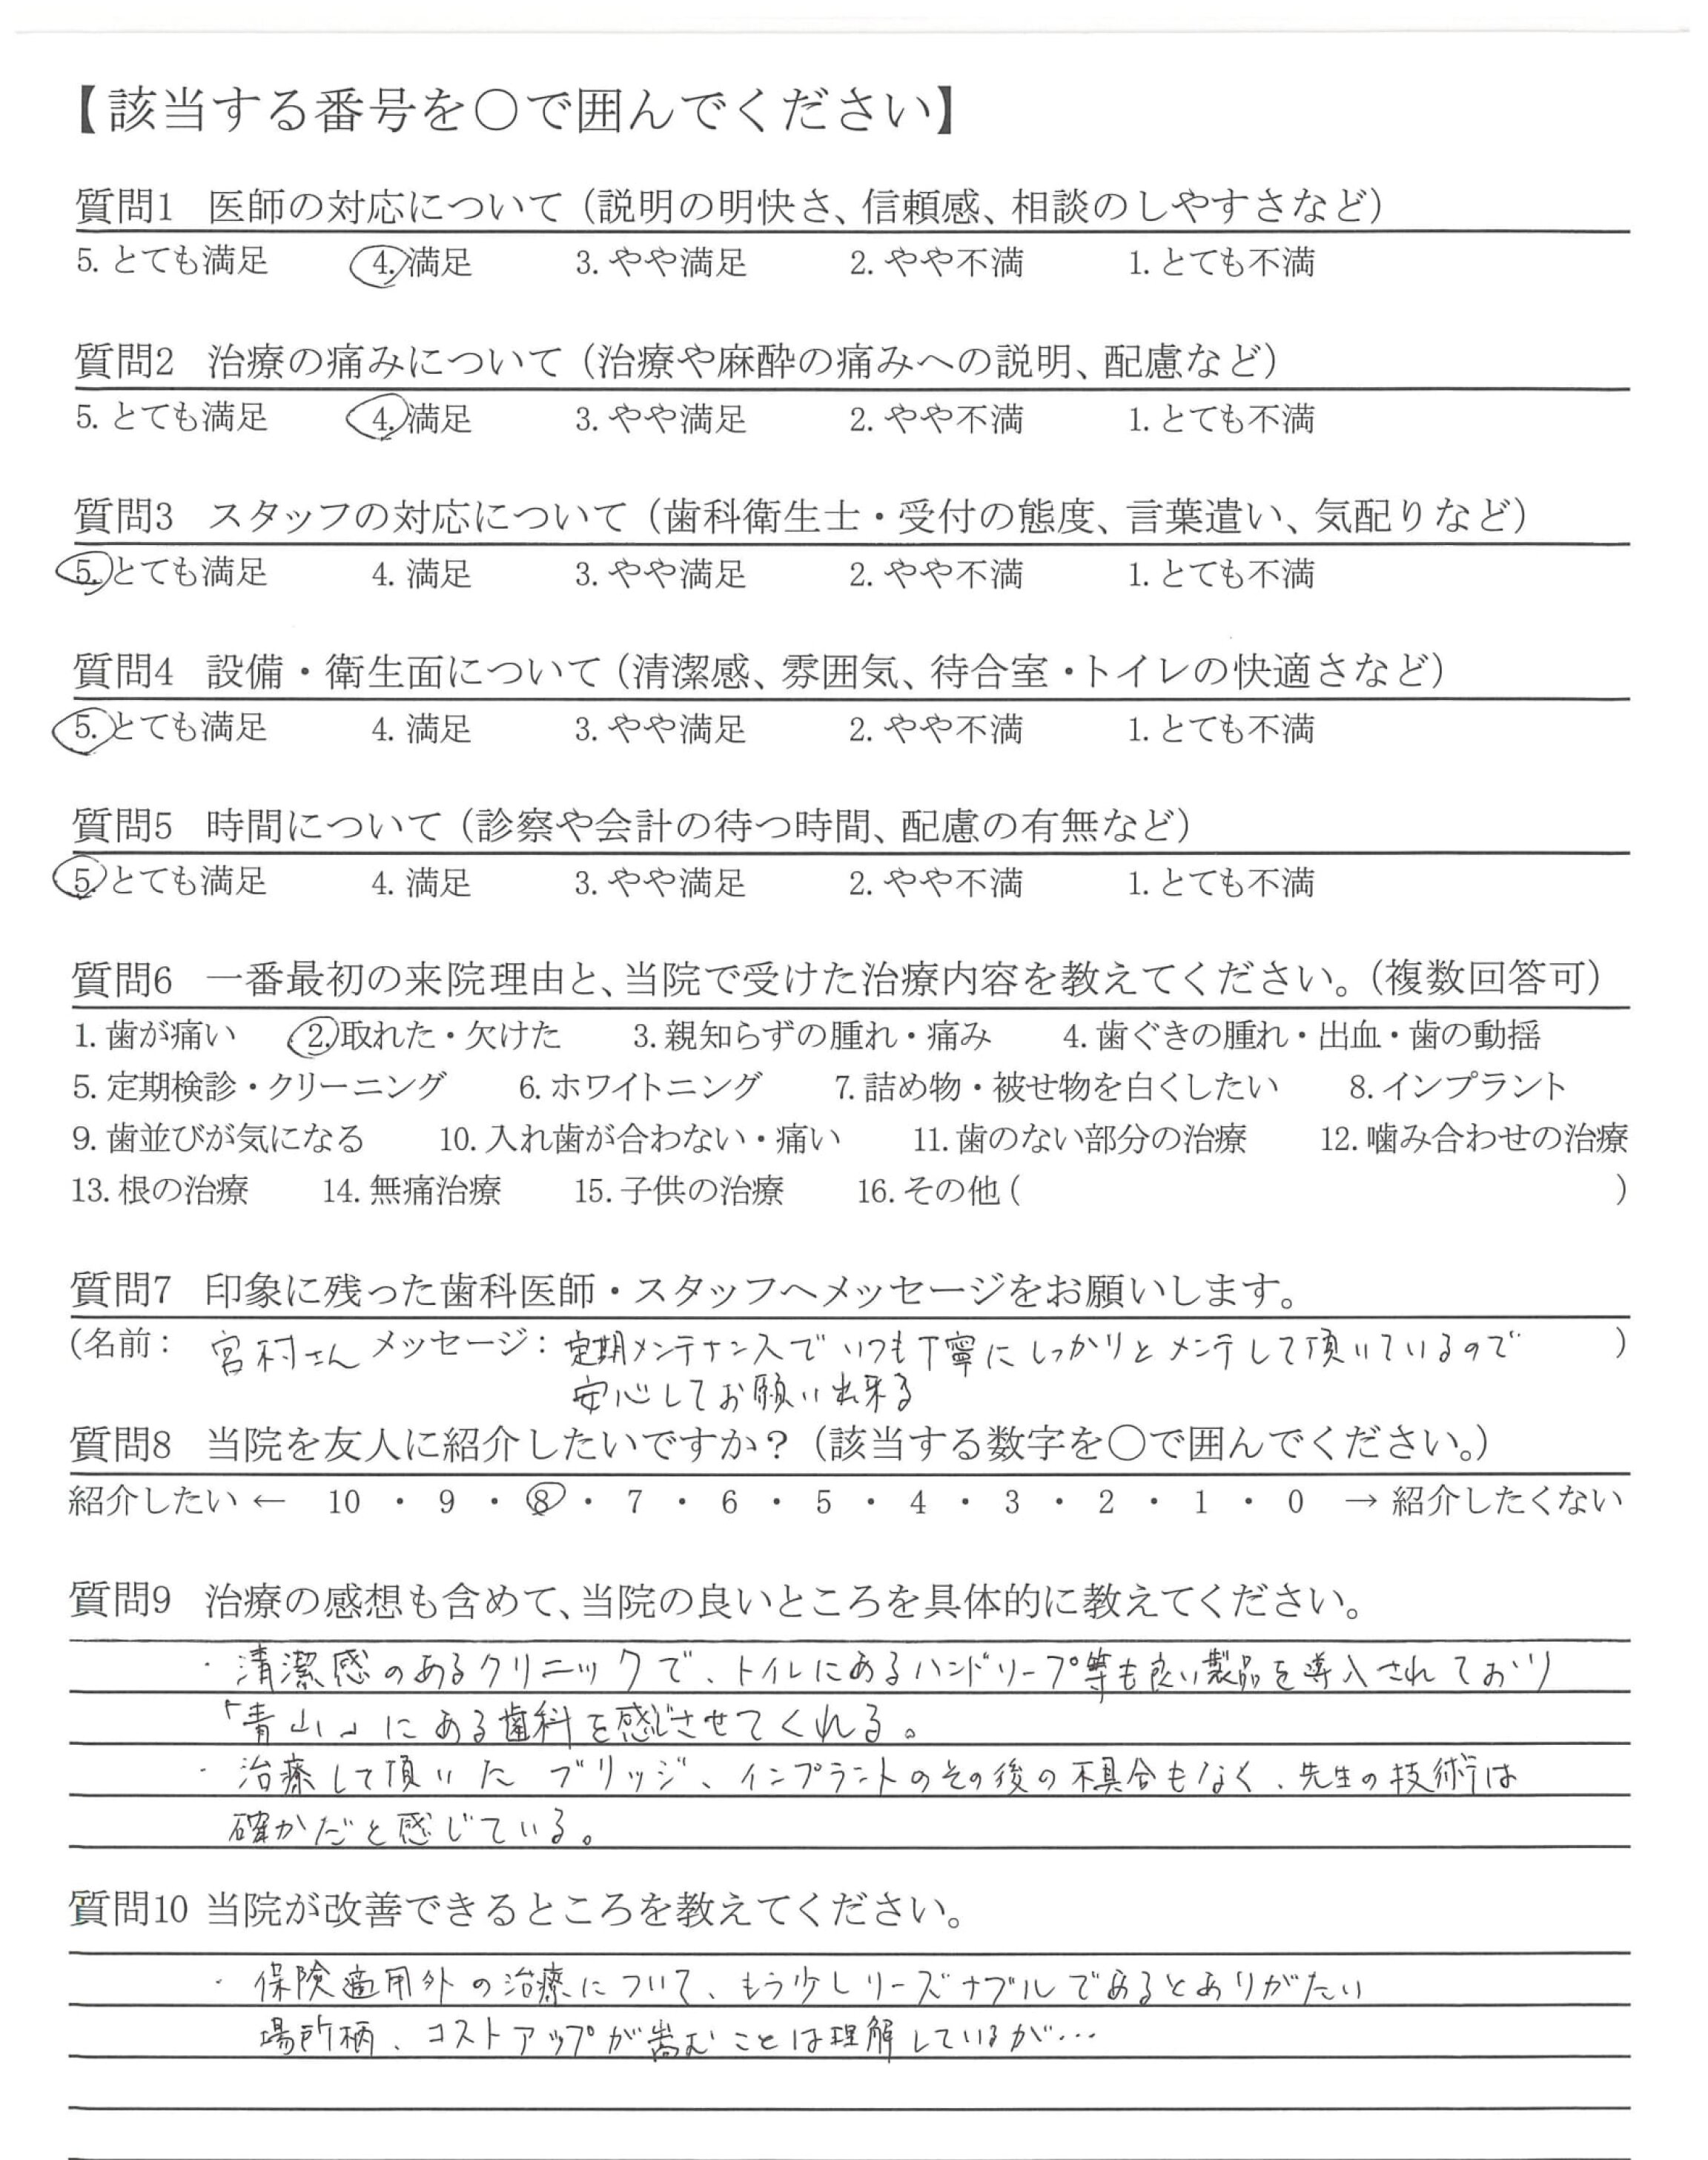 【該当する番号を○で囲んでください】
質問1 医師の対応について（説明の明快さ、信頼感、相談のしやすさなど）
5. とても満足 4. 満足 3. やや満足 2. やや不満 1. とても不満
質問2 治療の痛みについて（治療や麻酔の痛みへの説明、配慮など）
5. とても満足 4. 満足 3. やや満足 2. やや不満 1. とても不満
質問3 スタッフの対応について（歯科衛生士・受付の態度、言葉遣い、気配りなど）
5. とても満足 4. 満足 3. やや満足 2. やや不満 1. とても不満
質問4 設備・衛生面について（清潔感、雰囲気、待合室・トイレの快適さなど）
5. とても満足 4. 満足 3. やや満足 2. やや不満 1. とても不満
質問5 時間について（診察や会計の待つ時間、配慮の有無など）
5. とても満足 4. 満足 3. やや満足 2. やや不満 1. とても不満
質問6 一番最初の来院理由と、当院で受けた治療内容を教えてください。（複数回答可）
1. 歯が痛い 2. 取れた・欠けた 3. 親知らずの腫れ・痛み 4. 歯ぐきの腫れ・出血・歯の動揺
5. 定期検診・クリーニング 6. ホワイトニング 7. 詰め物・被せ物を白くしたい 8. インプラント
9. 歯並びが気になる 10. 入れ歯が合わない・痛い 11. 歯のない部分の治療 12. 噛み合わせの治療
13. 根の治療 14. 無痛治療 15. 子供の治療 16. その他（ ）
質問7 印象に残った歯科医師・スタッフへメッセージをお願いします。
（名前： 宮村さん メッセージ： 定期メンテナンスでいつも丁寧にしっかりとメンテして頂いているので ）
安心してお願い出来る
質問8 当院を友人に紹介したいですか？（該当する数字を○で囲んでください。）
紹介したい ← 10 ・ 9 ・ 8 ・ 7 ・ 6 ・ 5 ・ 4 ・ 3 ・ 2 ・ 1 ・ 0 → 紹介したくない
質問9 治療の感想も含めて、当院の良いところを具体的に教えてください。
・清潔感のあるクリニックで、トイレにあるハンドソープ等も良い製品を導入されており
「青山」にある歯科を感じさせてくれる。
・治療して頂いた ブリッジ、インプラントのその後の不具合もなく、先生の技術は
確かだと感じている。
質問10 当院が改善できるところを教えてください。
・保険適用外の治療について、もう少しリーズナブルであるとありがたい
場所柄、コストアップが嵩むことは理解しているが…